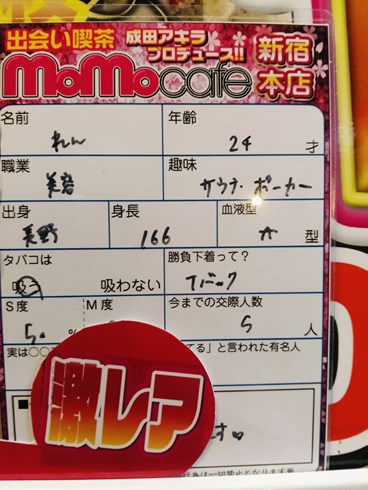 出会い喫茶 成田アキラプロデュース!! 新宿本店
MoMocafe
名前 れん
年齢 24 才
職業 美容
趣味 サウナ・ポーカー
出身 長野
身長 166
血液型 A 型
タバコは 吸う 吸わない
勝負下着って? Tバック
S度 50 %
M度
今までの交際人数 5 人
実は○○
てる」と言われた有名人
激レア
す♡